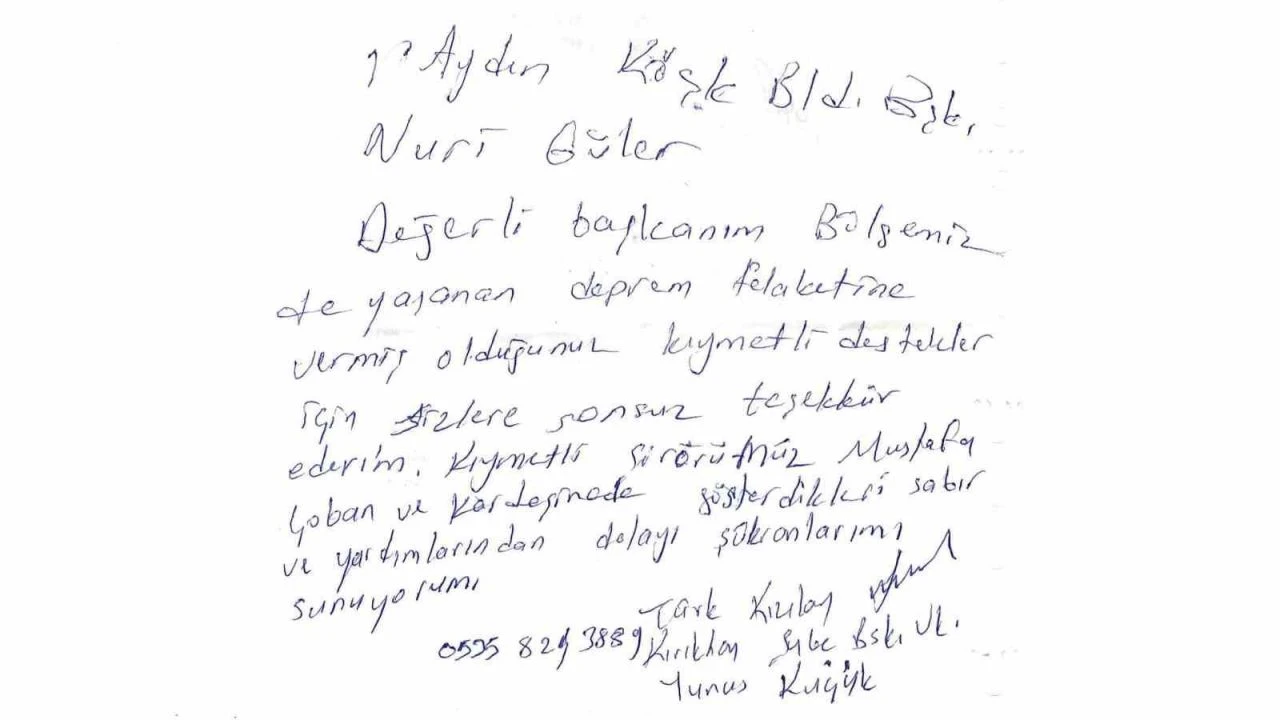 Aydın Köşk Bld. Bşk.
Nuri Güler
Değerli başkanım Bölgeniz
de yaşanan deprem felaketine
vermiş olduğunuz kıymetli destekler
için sizlere sonsuz teşekkür
ederim. Kıymetli Mustafa
Çoban ve Kardeşinede gösterdikleri sabır
ve yardımlarından dolayı şükranlarımı
sunuyorum
Türk Kızılay
0535 829 3889 Kırıkhan Şube Bşk. Vk.
Yunus Küçük